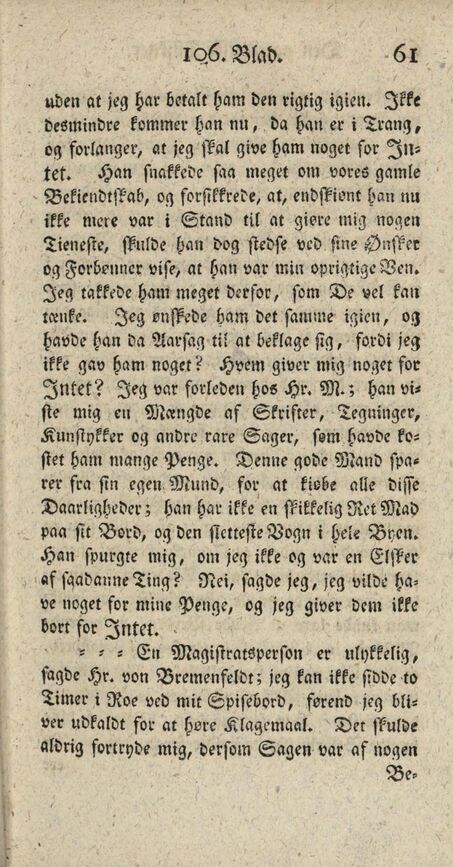 106. Blad. 61
uden at jeg har betalt ham den rigtig igien. Ikke
desmindre kommer han nu, da han er i Trang,
og forlanger, at jeg skal give ham noget for In⸗
tet. Han snakkede saa meget om vores gamle
Bekiendtskab, og forsikkrede, at, endskiønt han nu
ikke mere var i Stand til at giøre mig nogen
Tieneste, skulde han dog stedse ved sine Ønsker
og Forbønner vise, at han var min oprigtige Ven.
Jeg takkede ham meget derfor, som De vel kan
tænke. Jeg ønskede ham det samme igien, og
havde han da Aarsag til at beklage sig, fordi jeg
ikke gav ham noget? Hvem giver mig noget for
Intet? Jeg var forleden hos Hr. M.; han vi⸗
ste mig en Mængde af Skrifter, Tegninger,
Kunstykker og andre rare Sager, som havde ko⸗
stet ham mange Penge. Denne gode Mand spa⸗
rer fra sin egen Mund, for at kiøbe alle disse
Daarligheder; han har ikke en skikkelig Ret Mad
paa sit Bord, og den sletteste Vogn i hele Byen.
Han spurgte mig, om jeg ikke og var en Elsker
af saadanne Ting? Nei, sagde jeg, jeg vilde ha⸗
ve noget for mine Penge, og jeg giver dem ikke
bort for Intet.
⸗ ⸗ ⸗ En Magistratsperson er ulykkelig,
sagde Hr. von Bremenfeldt; jeg kan ikke sidde to
Timer i Roe ved mit Spisebord, førend jeg bli⸗
ver udkaldt for at høre Klagemaal. Det skulde
aldrig fortryde mig, dersom Sagen var af nogen
Be⸗